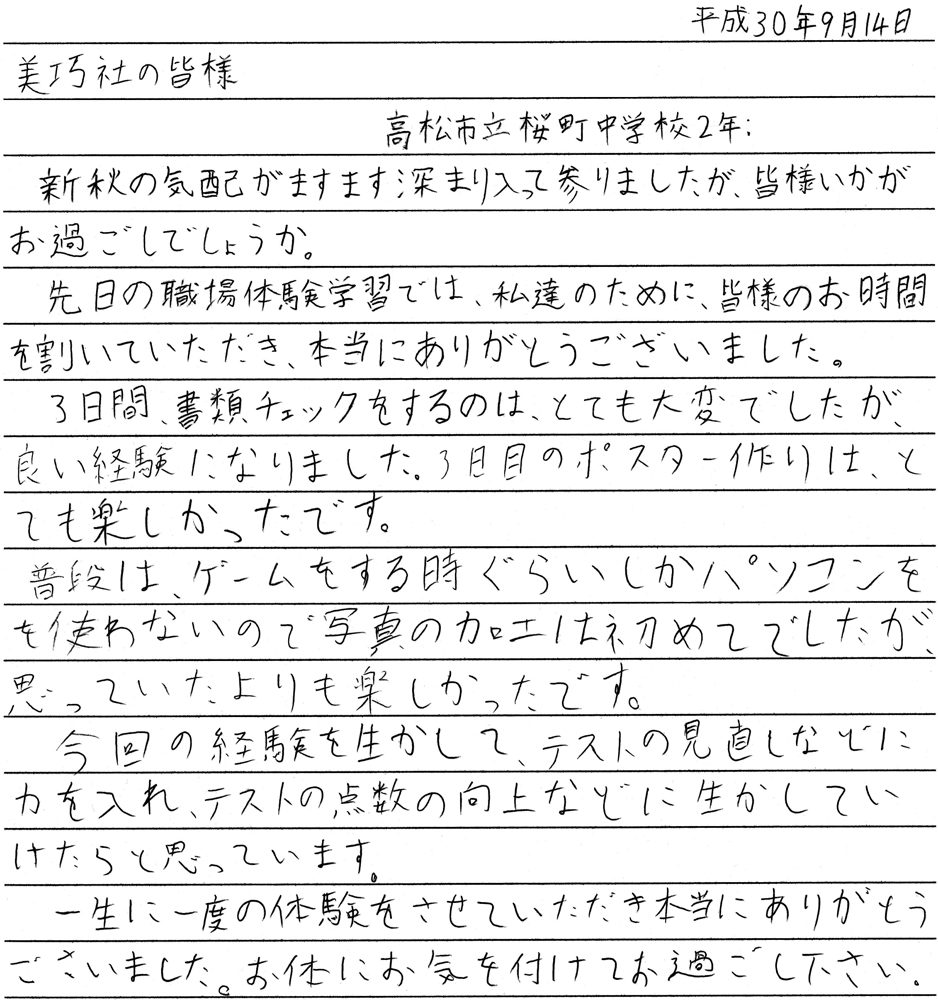 平成30年9月14日
美巧社の皆様
高松市立桜町中学校2年:
新秋の気配がますます深まり入って参りましたが、皆様いかが
お過ごしでしょうか。
先日の職場体験学習では、私達のために、皆様のお時間
を割いていただき、本当にありがとうございました。
3日間、書類チェックをするのは、とても大変でしたが、
良い経験になりました。3日目のポスター作りは、と
ても楽しかったです。
普段は、ゲームをする時ぐらいしかパソコンを
を使わないので写真の加工は初めてでしたが、
思っていたよりも楽しかったです。
今回の経験を生かして、テストの見直しなどに
力を入れ、テストの点数の向上などに生かしてい
けたらと思っています。
一生に一度の体験をさせていただき本当にありがとう
ございました。お体にお気を付けてお過ごし下さい。